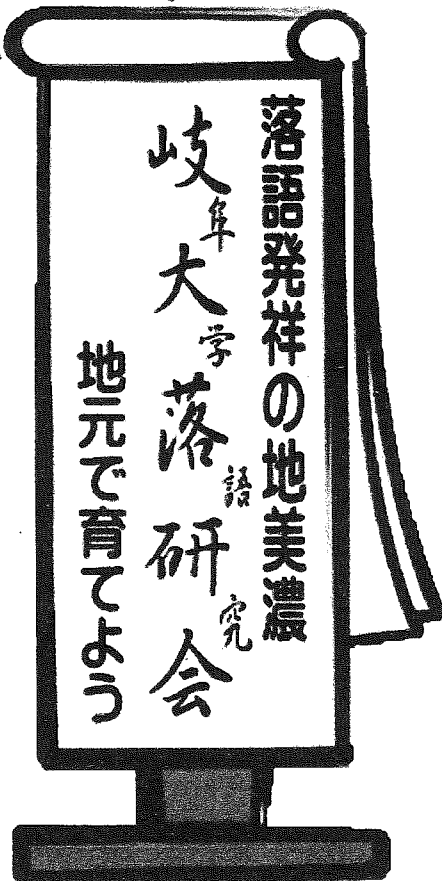 落語発祥の地美濃
岐阜大学落語研究会
地元で育てよう